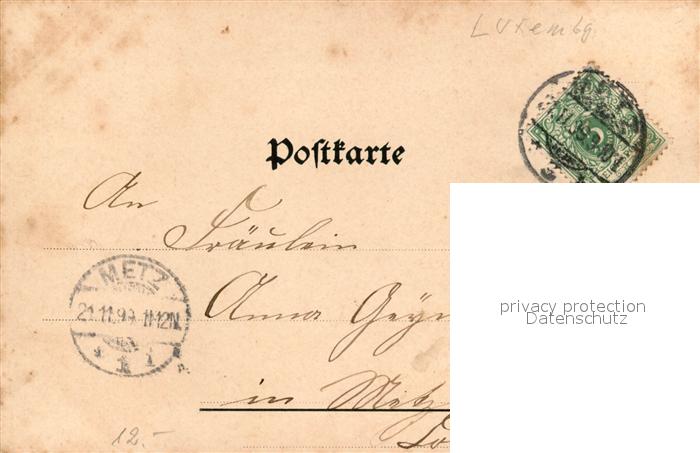 Luxembg.
Postkarte
An
Fräulein
Anna Gey
in Metz
Lo
METZ
21.11.99. 11-12N.
1
12.-
privacy protection
Datenschutz